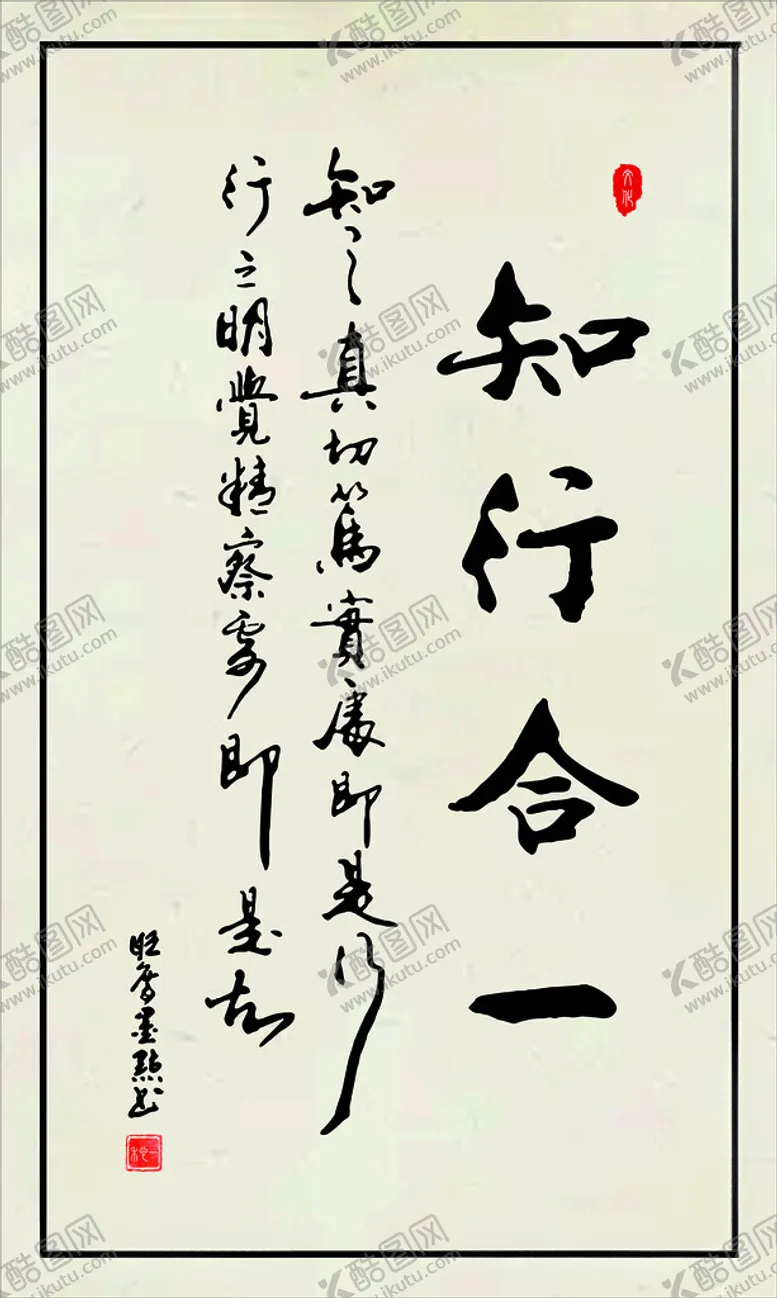 知行合一
知之真切篤實處即是行
行之明覺精察處即是知
文化
酷图网
www.ikutu.com